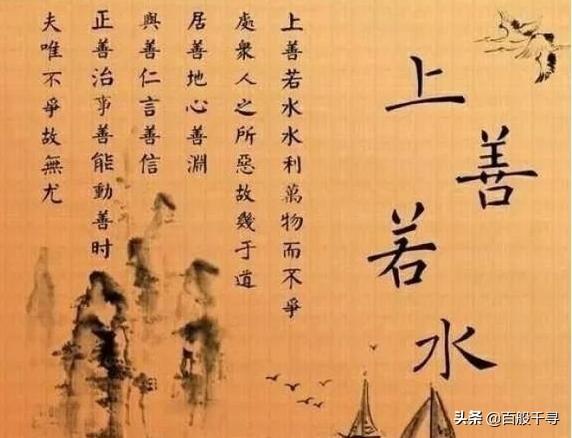 上善若水
上善若水水利萬物而不爭
處衆人之所惡故幾于道
居善地心善淵
與善仁言善信
正善治事善能動善时
夫唯不爭故無尤
头条 @百股千寻